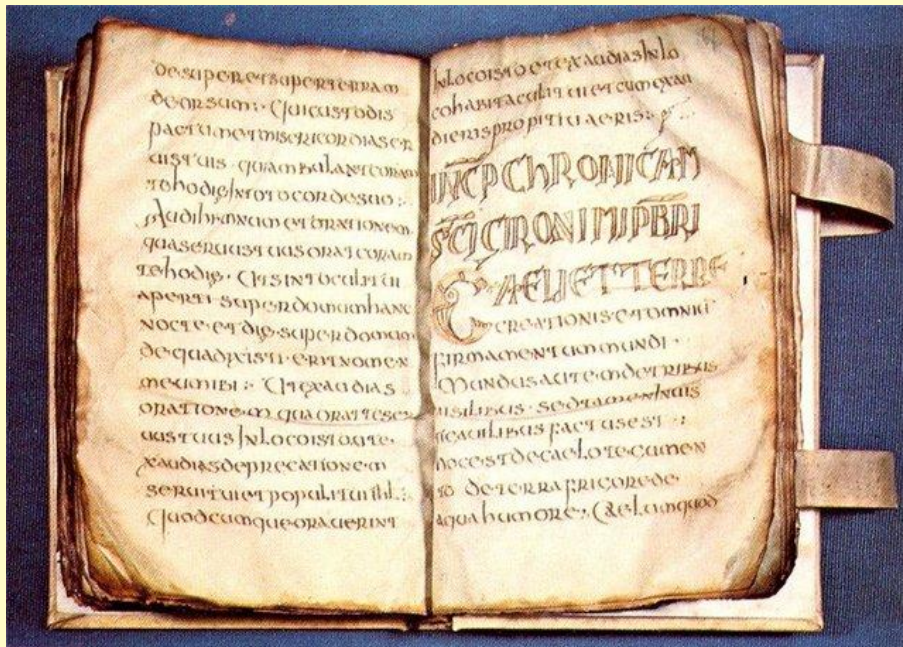 desuper et super terram
deorsum · Qui custodis
pactum et misericordias er
uis tuis · qui ambulant coram
te hodie in toto corde suo :
Audi hemnum et orationem
qua seruus tuus orat coram
te hodie · Ut sint oculi tui
aperti · super domum hanc
nocte · et die · super domum
de qua dixisti · erit nomen
meum ibi : Ut exaudias
oratione m qua orat te ser
uus tuus In loco isto ut e
xaudias deprecatione m
serui tui et populi tui ihl :
Quodcumque oraverint
In loco isto et exaudias In lo
co habitaculi tui et cum exau
dieris propitiu aeris :
INCP CHRONICAM
SCI GIRONIMI PBRI
CAELI ET TERRE
creationis et omniu
firmamentum mundi ·
Mundus autem de tribus
uisilibus · sed tamen
factus est :
hoc est de caelo
de terra fricore de
aqua humore · Caelum quod